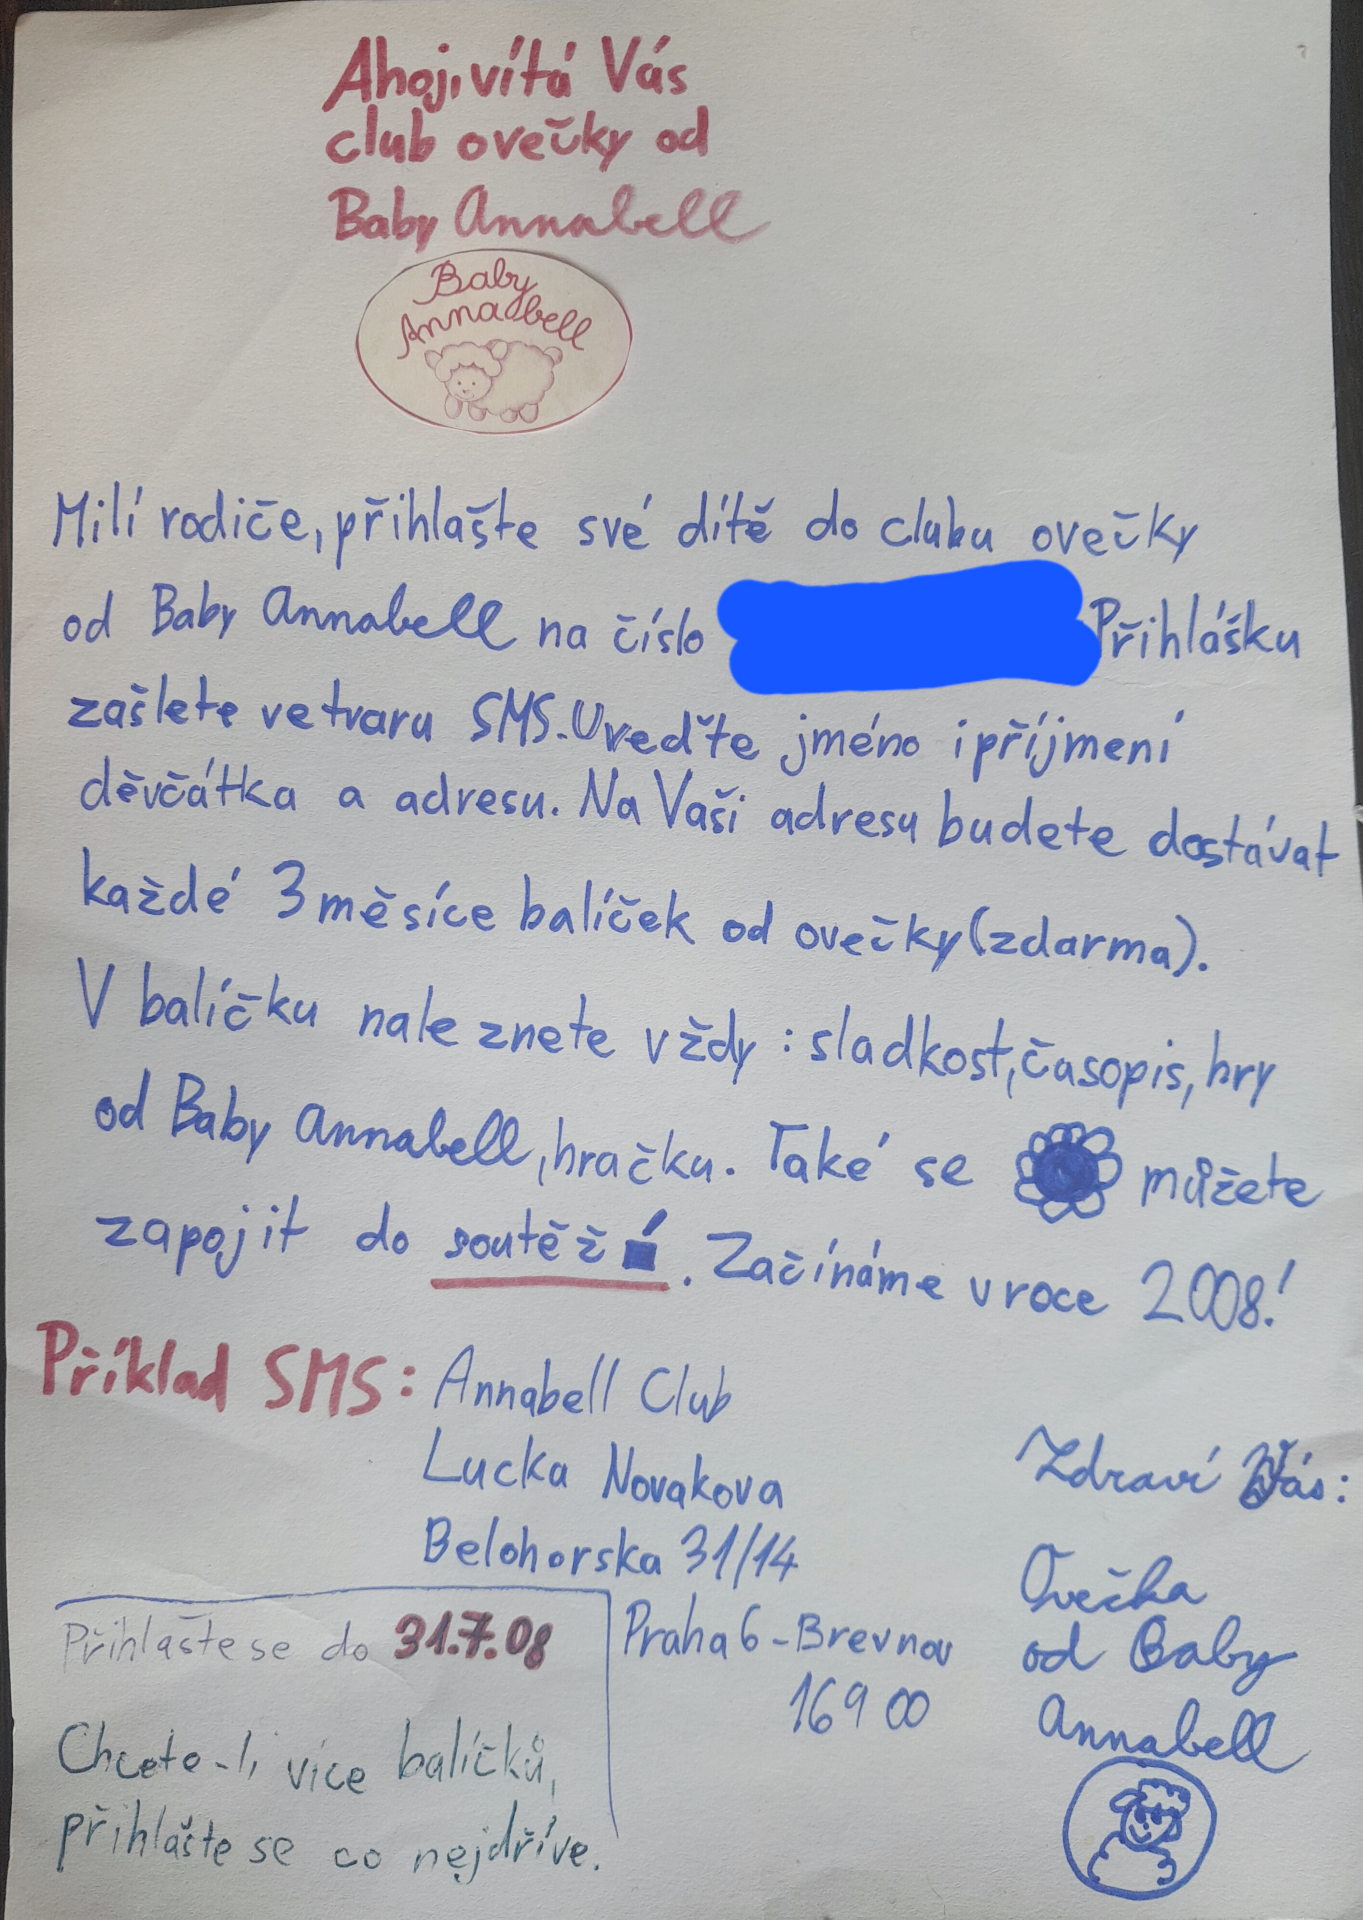 Ahoj, vítá Vás
club ovečky od
Baby Annabell
Baby
Annabell
Milí rodiče, přihlašte své dítě do clubu ovečky
od Baby Annabell na číslo Přihlášku
zašlete ve tvaru SMS. Uveďte jméno i příjmení
děvčátka a adresu. Na Vaši adresu budete dostávat
každé 3 měsíce balíček od ovečky (zdarma).
V balíčku naleznete vždy: sladkost, časopis, hry
od Baby Annabell, hračku. Také se můžete
zapojit do soutěží. Začínáme v roce 2008!
Příklad SMS: Annabell Club
Lucka Novakova
Belohorska 31/14
Praha 6 - Brevnov
169 00
Zdraví Vás:
Ovečka
od Baby
Annabell
Přihlašte se do 31.7.08
Chcete-li více balíčků,
přihlašte se co nejdříve.